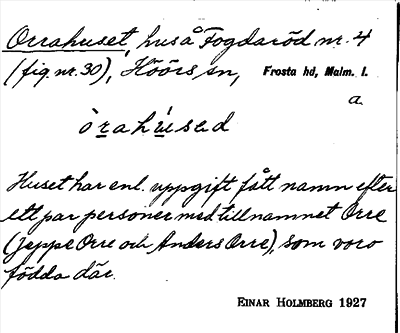 Orrahuset, hus å Fogdaröd nr. 4
(fig. nr. 30), Höörs sn, Frosta hd, Malm. l.
a.
òrahu̇sad
Huset har enl. uppgift fått namn efter
ett par personer med tillnamnet Orre
(Jeppe Orre och Anders Orre), som voro
födda där.
EINAR HOLMBERG 1927